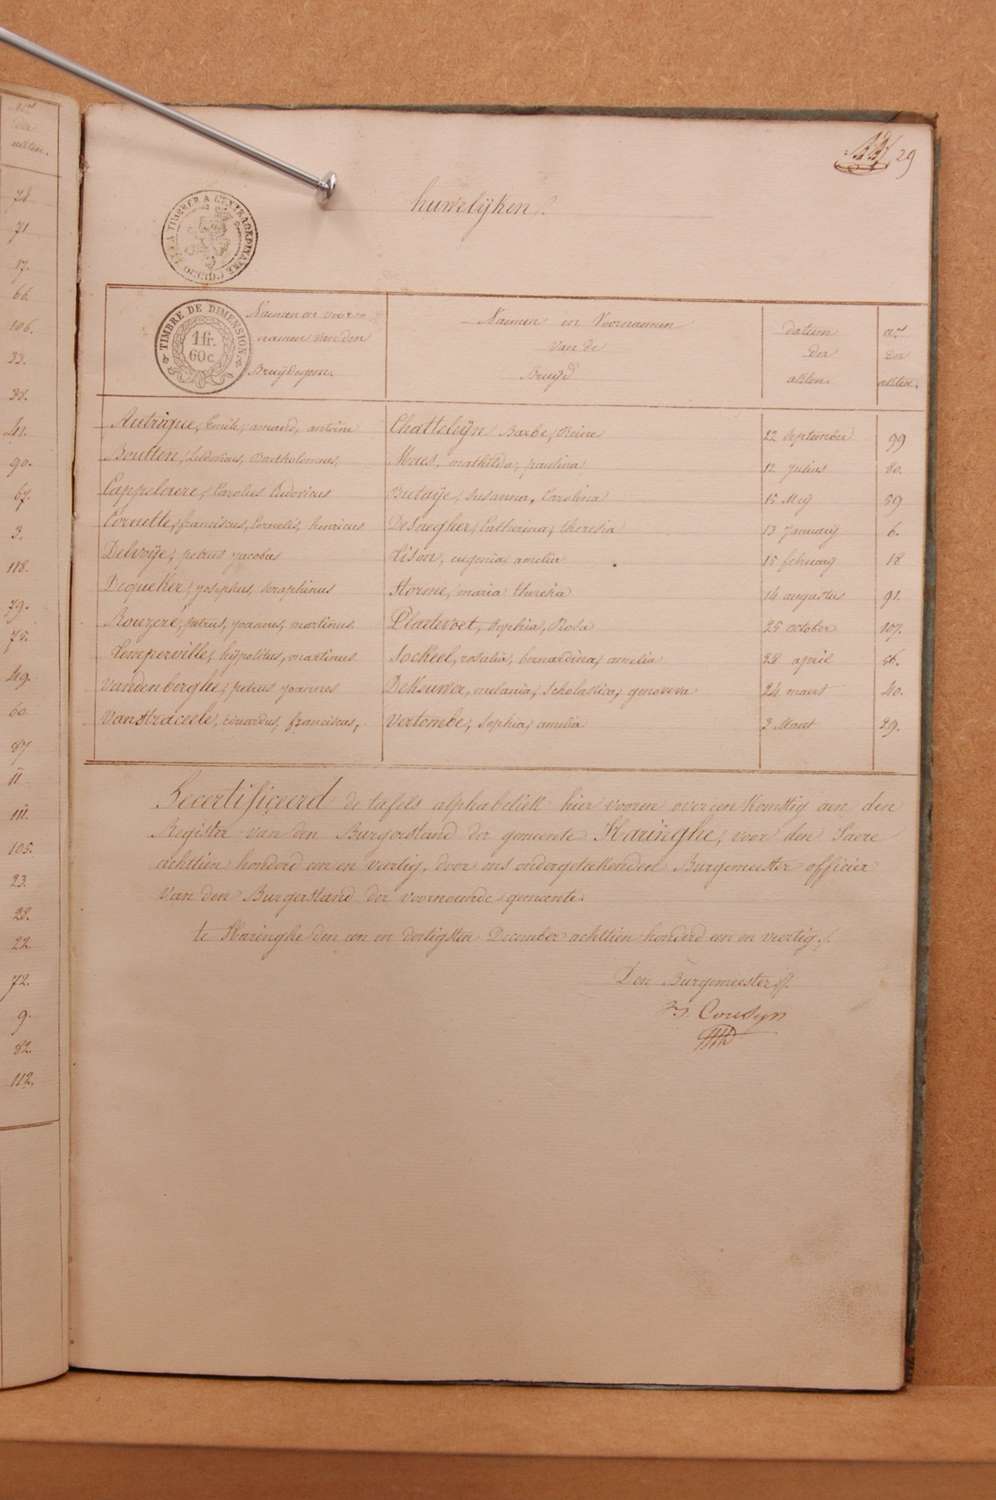 29
huwelijken.
TIMBRE DE DIMENSION
1 fr.
60 c.
Naemen en voor-
namen van den
Bruijdegom.
Naemen en Voornaemen
van de
Bruijd
datum
der
akten.
nr
der
akten.
Autrique, Emile, amand, antoine Chattelijn Barbe, Reine 22 September 99
Boutten, Ludovicus, Bartholomeus, Maes, mathilda, paulina 12 Julius 80.
Cappelaere, Carolus Ludovicus Butaije, Susanna, Carolina 15 Meij 59
Cornette, franciscus, Cornelis, henricus DeSaegher, Catharina, theresia 13 January 6.
Delvoije, petrus jacobus Lison, eugenia amelia 15 february 18
Dequeker, josephus, Seraphinus Florene, maria theresia 14 augustus 91.
Rouzeré, petrus, joannes, martinus Pladevoet, Sophia, Rosa 25 october 107.
Temperville, hippolitus, martinus Sockeel, rosalia, bernardina, amelia 28 april 56.
Vandenberghe, petrus joannes DeKeuwer, melania, Scholastica, genoveva 24 maert 40.
VanStraceele, eduardus, franciscus, Vertombe, Sophia, amelia 2 Maert 29.
Gecertificeerd de tafels alphabetiek hier vooren overeenkomstig aen den
Register van den Burgerstand der gemeente Haringhe, voor den Jaere
achttien honderd een en veertig, door ons ondergeteekenden Burgemeester officier
van den Burgerstand der voornoemde gemeente.
te Haringhe den een en dertigsten December achttien honderd een en veertig.
Den Burgemeester
Cousijn
78
71
57.
66.
106.
33.
38.
41.
90.
67.
3.
118.
79.
75.
49.
60
87
11
111.
105.
23.
28.
22
72.
9.
82
112.